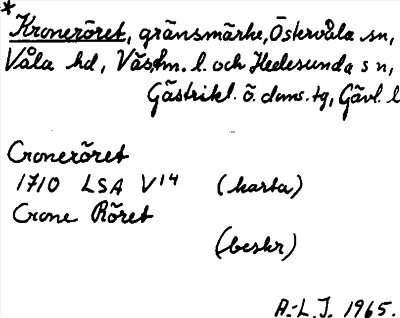 *
Kroneröret, gränsmärke, Östervåla sn,
Våla hd, Västm. l. och Hedesunda sn,
Gästrikl. ö. doms.tg, Gävl. l
Croneröret
1710 LSA V14 (karta)
Crone Röret
(beskr)
A.-L. J. 1965.